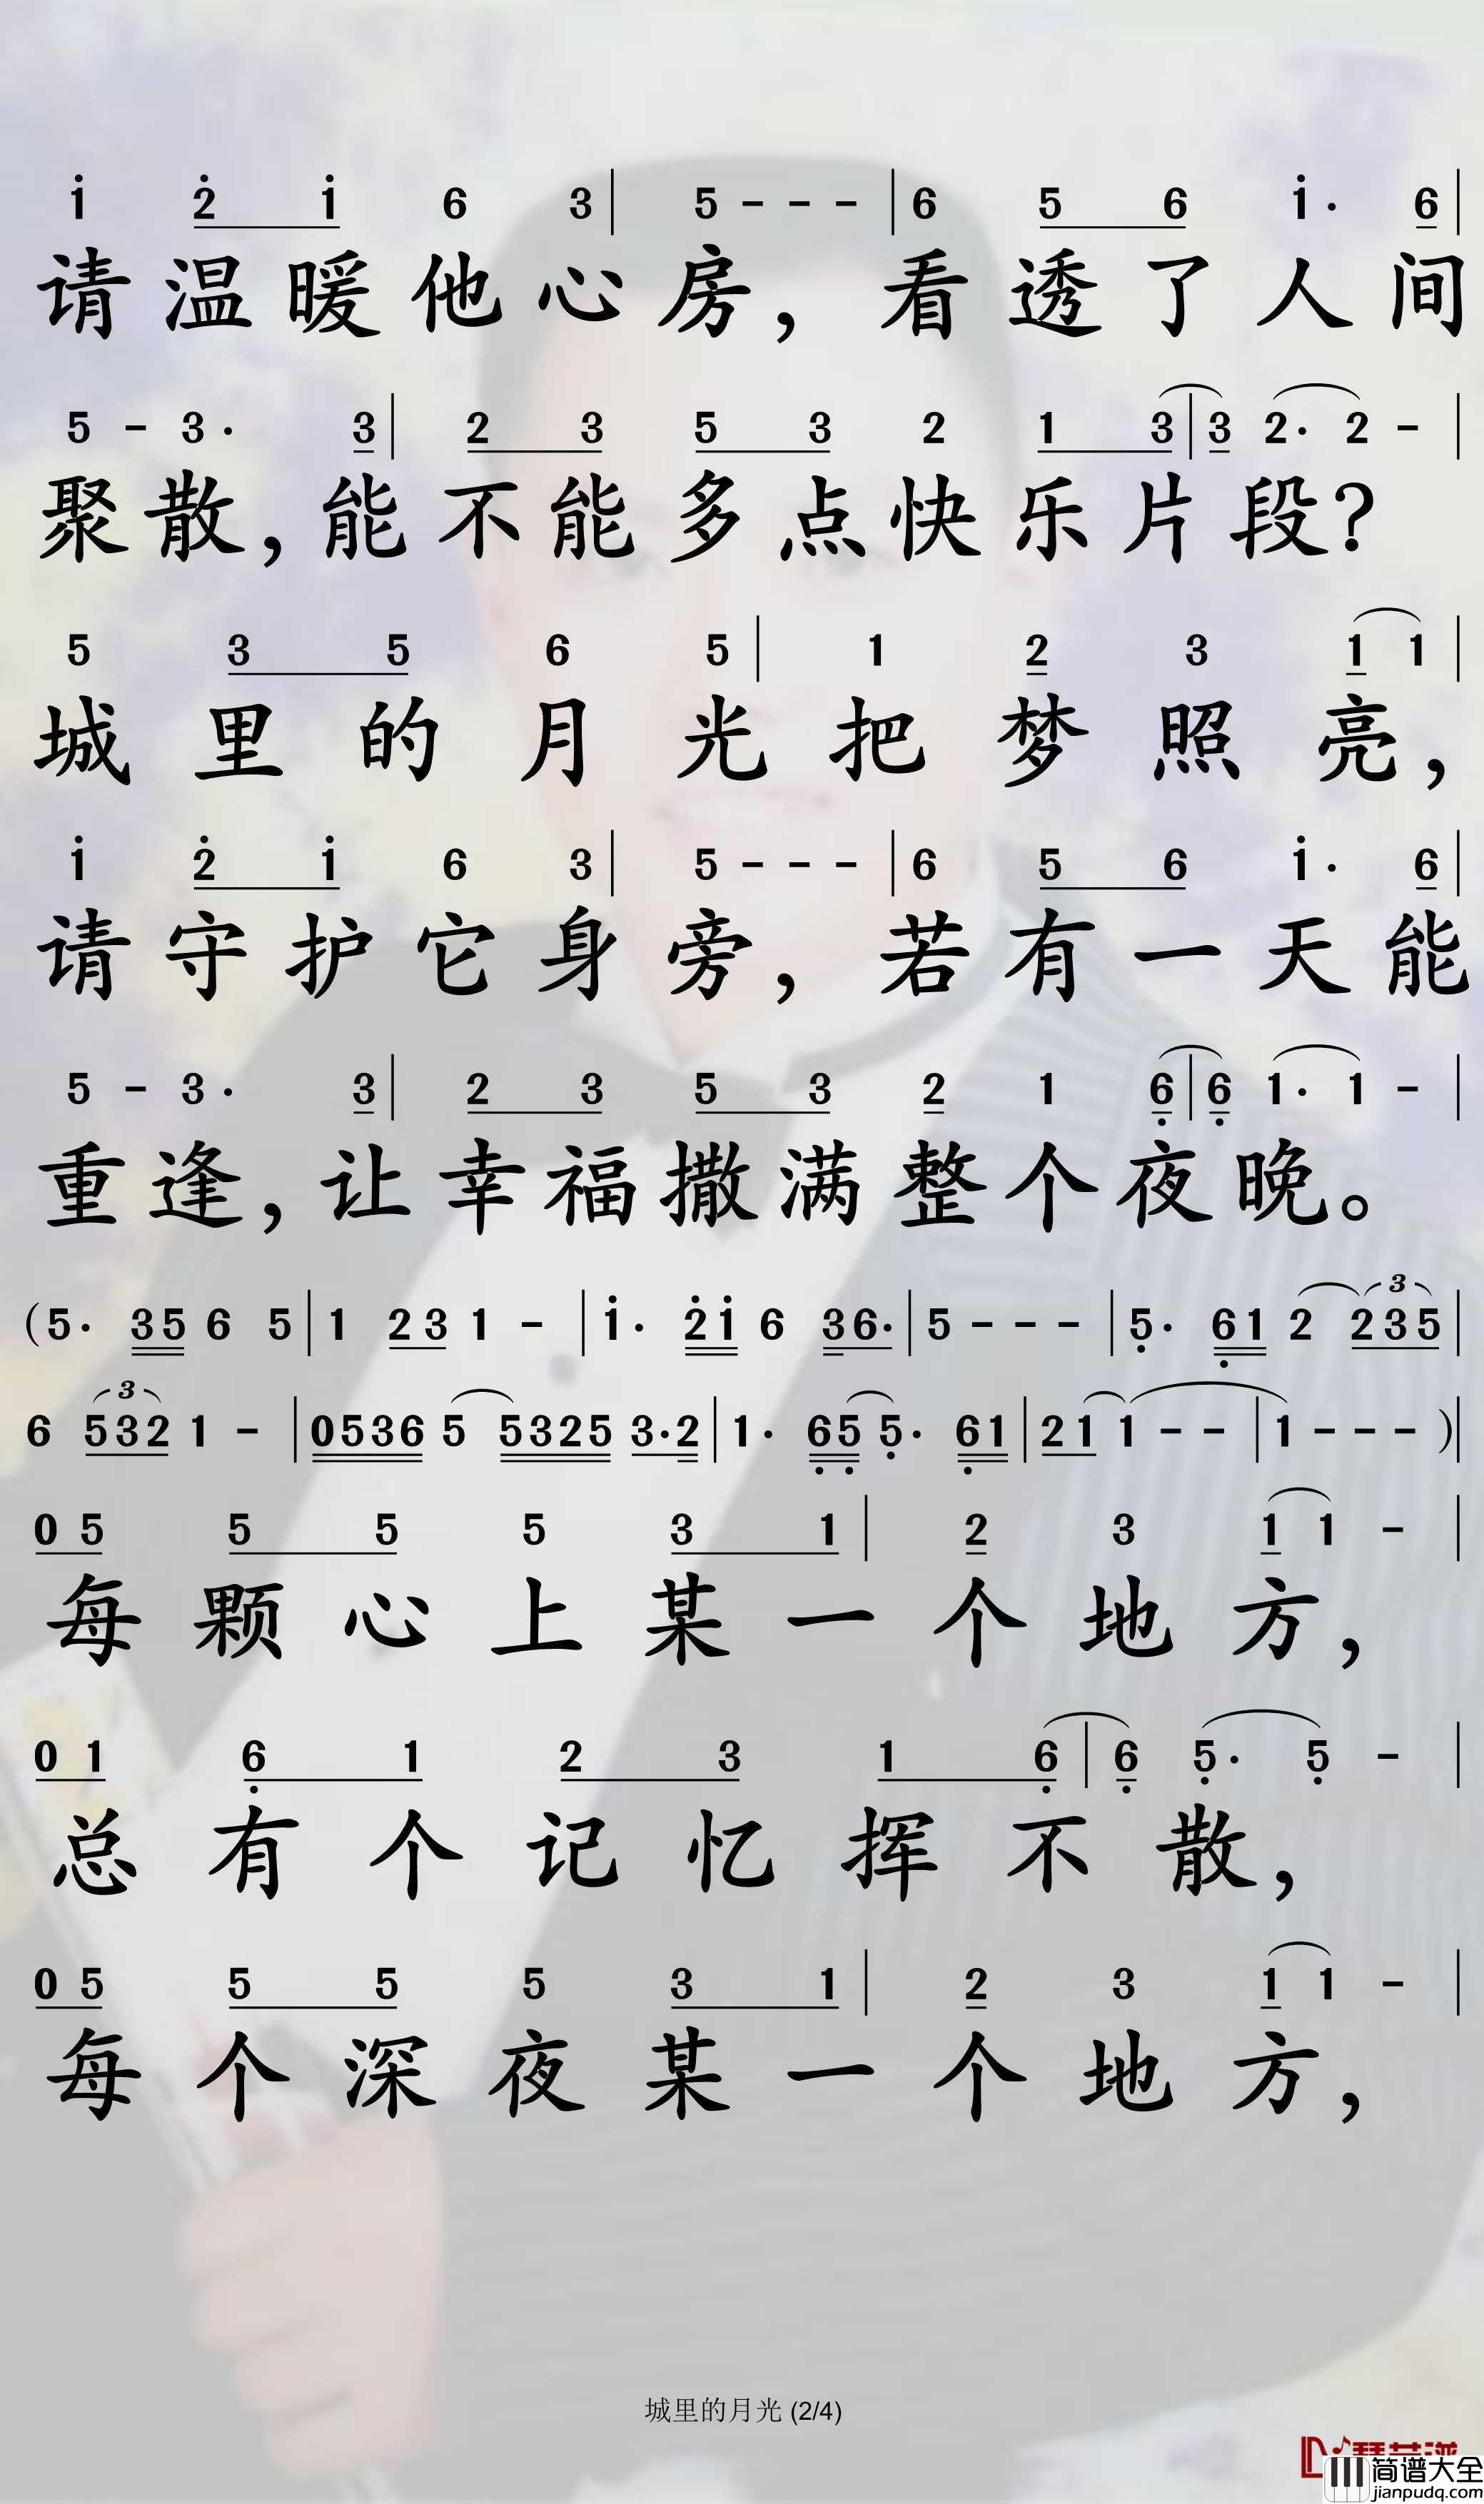 1 2 1 6 3 | 5 - - - | 6 5 6 1· 6 |
请温暖他心房，看透了人间
5 - 3· 3 | 2 3 5 3 2 1 3 | 3 2· 2 - |
聚散，能不能多点快乐片段？
5 3 5 6 5 | 1 2 3 1 1 |
城里的月光把梦照亮，
1 2 1 6 3 | 5 - - - | 6 5 6 1· 6 |
请守护它身旁，若有一天能
5 - 3· 3 | 2 3 5 3 2 1 6 | 6 1· 1 - |
重逢，让幸福撒满整个夜晚。
3
(5· 35 6 5 | 1 23 1 - | 1· 21 6 36· | 5 - - - | 5· 61 2 235 |
3
6 532 1 - | 0536 5 5325 3·2 | 1· 65 5· 61 | 21 1 - - | 1 - - - )|
0 5 5 5 5 3 1 | 2 3 1 1 - |
每颗心上某一个地方，
0 1 6 1 2 3 1 6 | 6 5· 5 - |
总有个记忆挥不散，
0 5 5 5 5 3 1 | 2 3 1 1 - |
每个深夜某一个地方，
城里的月光 (2/4)
简谱大全
jianpudq.com